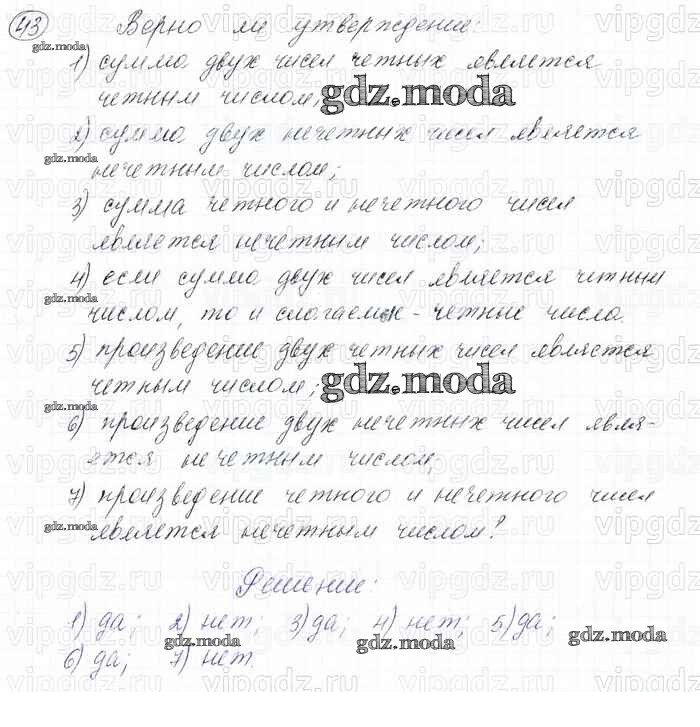 43 Верно ли утверждение:
1) сумма двух чисел четных является
четным числом;
2) сумма двух нечетных чисел является
нечетным числом;
3) сумма четного и нечетного чисел
является нечетным числом;
4) если сумма двух чисел является четным
числом, то и слагаемые - четные числа.
5) произведение двух четных чисел является
четным числом;
6) произведение двух нечетных чисел явля-
ется нечетным числом;
7) произведение четного и нечетного чисел
является нечетным числом?
Решение:
1) да; 2) нет; 3) да; 4) нет; 5) да;
6) да; 7) нет.